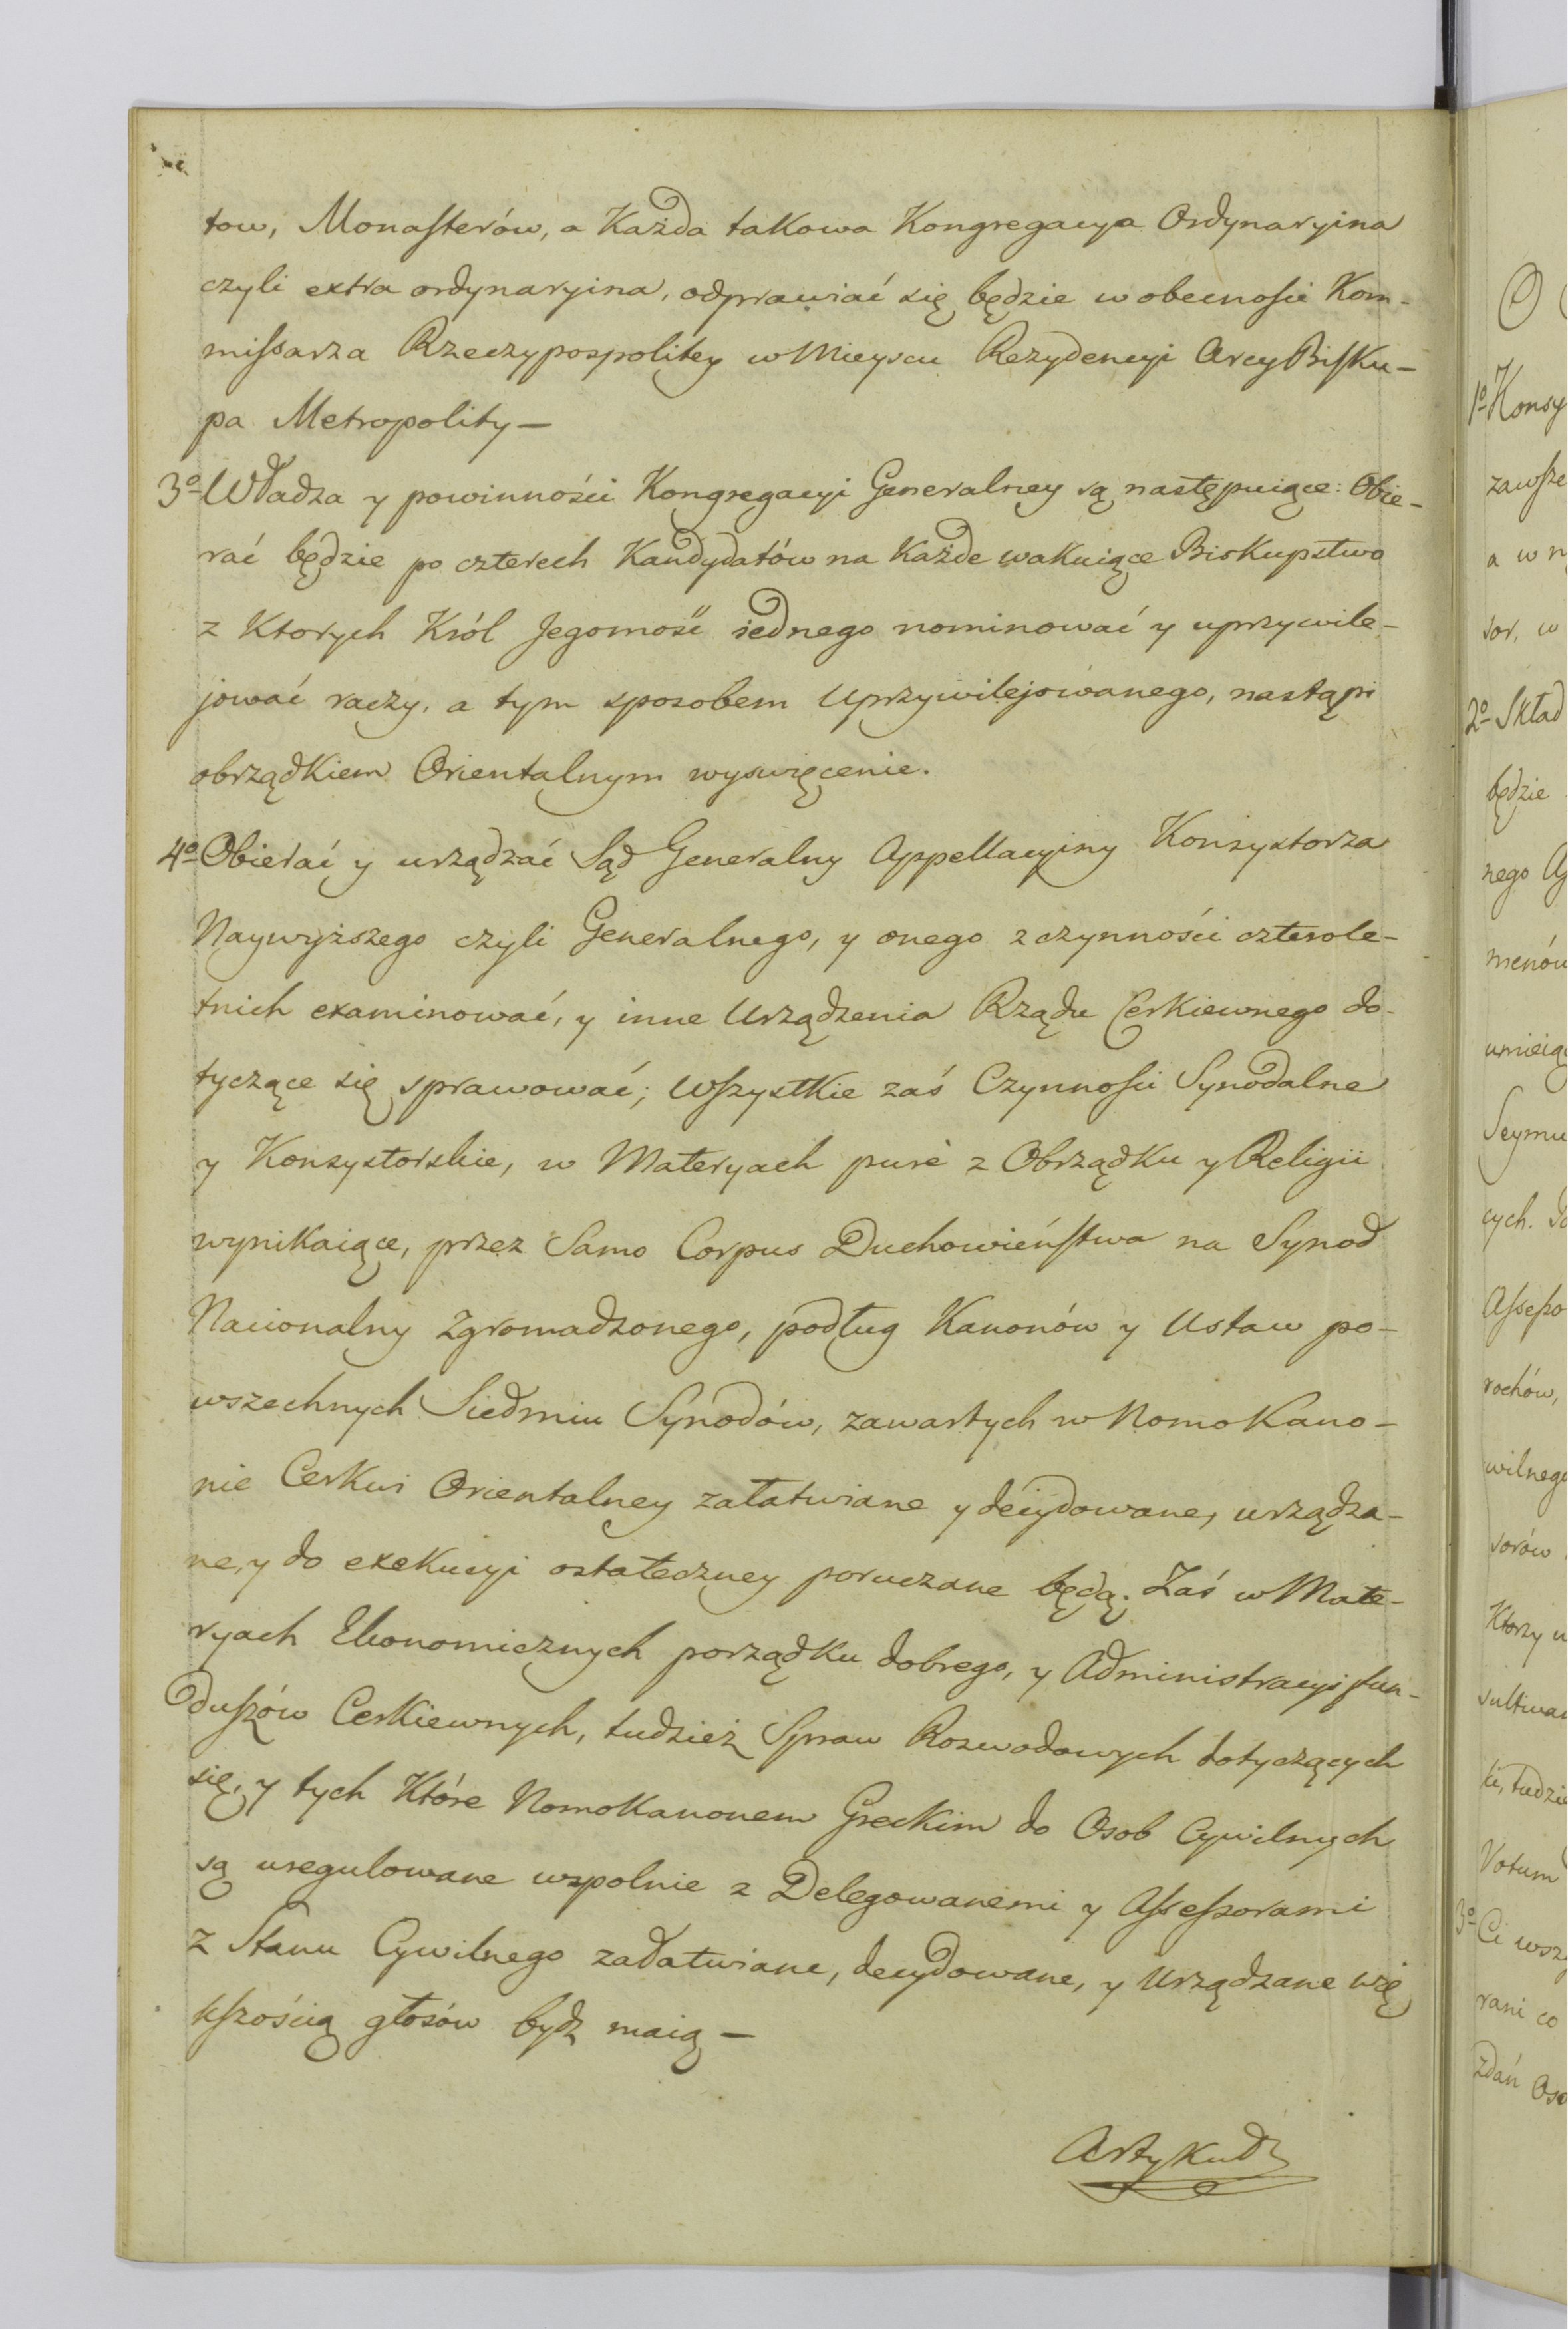 tow, Monasterów, a Każda takowa Kongregacya Ordynaryina
czyli extra ordynaryina, odprawiać się będzie w obecnosci Kom-
missarza Rzeczypospolitey w Mieyscu Rezydencyi ArcyBisku-
pa Metropolity —
3º Władza y powinności Kongregacyi Generalney są następuiące: Obie-
rać będzie po czterech Kandydatów na Każde wakuiące Biskupstwo
z Ktorych Król Jegomość iednego nominować y uprzywile-
jować raczy, a tym sposobem Uprzywilejowanego, nastąpi
obrządkiem Orientalnym wyswięcenie.
4º Obierać y urządzać Sąd Generalny Appellacyiny Konsystorza
Naywyższego czyli Generalnego, y onego z czynności czterole-
tnich examinować, y inne Urządzenia Rządu Cerkiewnego do-
tyczące się sprawować; Wszystkie zaś Czynnosci Synodalne
y Konsystorskie, w Materyach purè z Obrządku y Religii
wynikaiące, przez Samo Corpus Duchowieństwa na Synod
Nacionalny Zgromadzonego, podług Kanonów y Ustaw po-
wszechnych Siedmiu Synodów, zawartych w NomoKano-
nie Cerkwi Orientalney załatwiane y decydowane, urządza-
ne, y do exekucyi ostateczney poruczane będą. Zaś w Mate-
ryach Ekonomicznych porządku dobrego, y Administracyi fun-
duszów Cerkiewnych, tudzież Spraw Rozwodowych dotyczących
się, y tych Które Nomokanonem Greckim do Osob Cywilnych
są uregulowane wspolnie z Delegowanemi y Assessorami
z Stanu Cywilnego załatwiane, decydowane, y Urządzane wię
kszością głosów bydź maią —
Artykuł
1º Konsy
zawsze
a w n
sor, w
2º Skład
będzie
nego
menów
umieią
Seymu
cych.
Assesso
rochów,
wilnego
sorów
Ktorzy
ki, tudzie
Votum
3º Ci wszy
rani co
zdań Oso